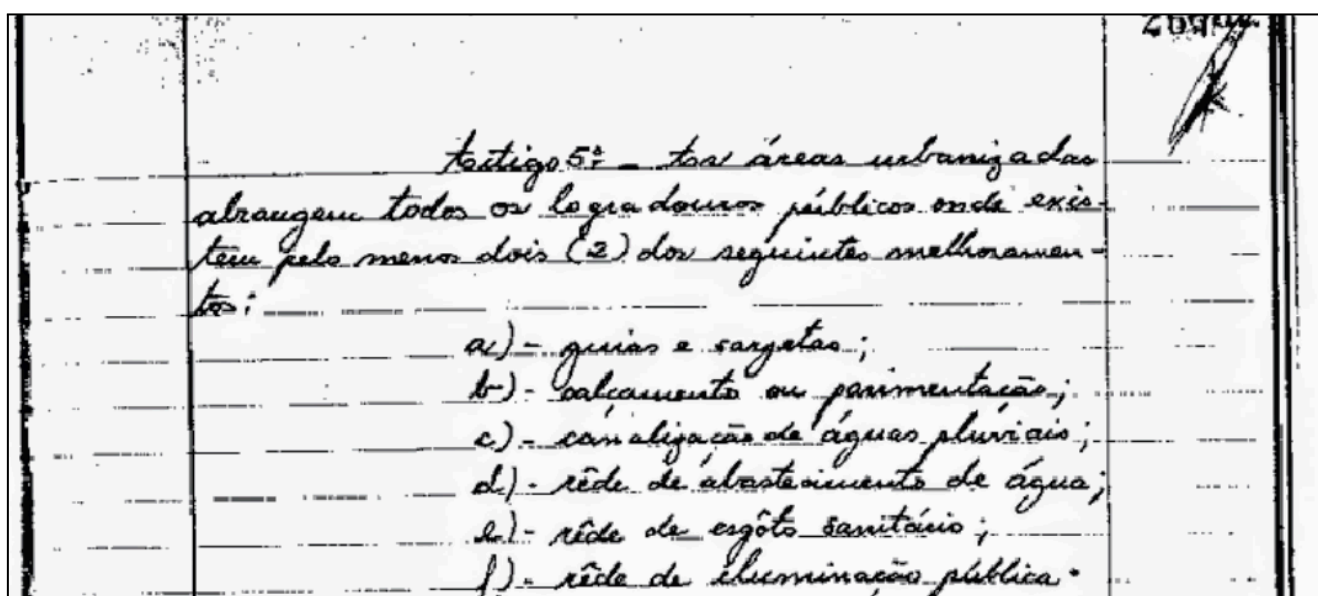 Artigo 5º - As áreas urbanizadas
abrangem todos os logradouros públicos onde exis-
tem pelo menos dois (2) dos seguintes melhoramen-
tos:
a) - guias e sargetas;
b) - calçamento ou pavimentação;
c) - canalização de águas pluviais;
d) - rêde de abastecimento de água;
e) - rêde de esgôto sanitário;
f) - rêde de iluminação pública.